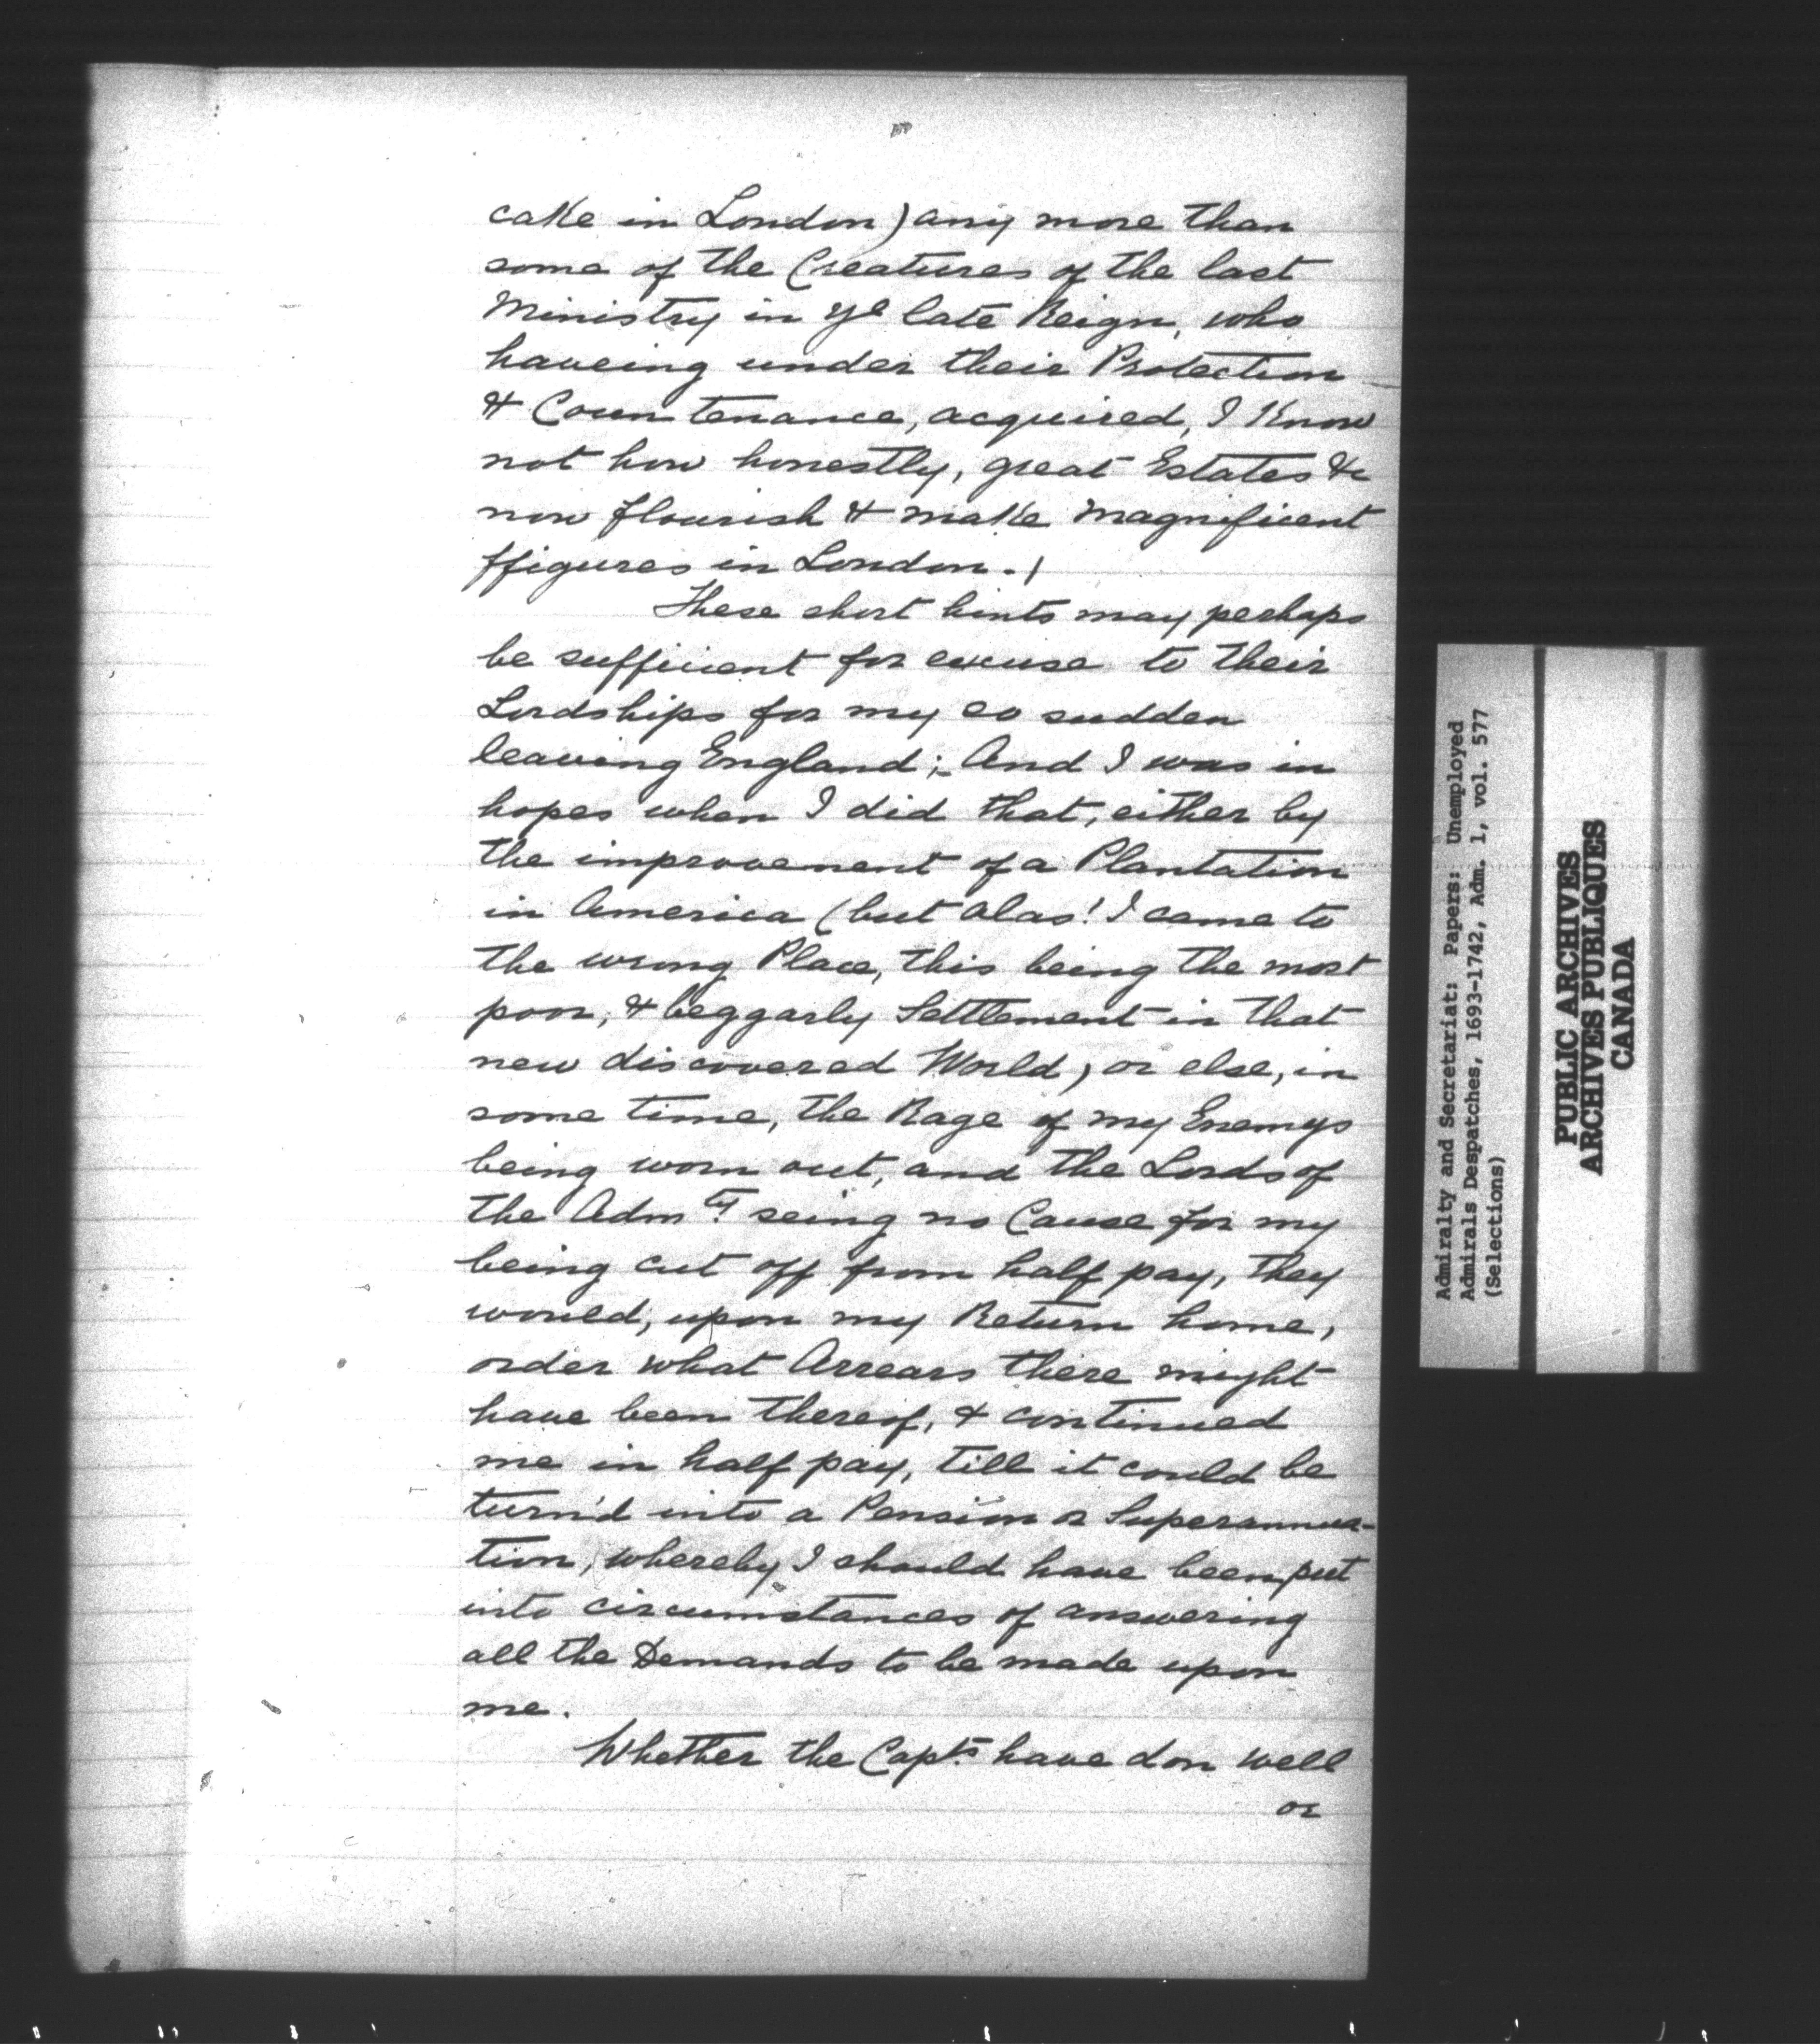 cake in London) any more than
some of the Creatures of the last
Ministry in ye late Reign, who
haveing under their Protection
& Countenance, acquired, I know
not how honestly, great Estates &c
now flourish & make magnificent
ffigures in London.)
These short hints may perhaps
be sufficient for excuse to their
Lordships for my so sudden
leaving England;- And I was in
hopes when I did that, either by
the improvement of a Plantation
in America (but alas! I came to
the wrong Place, this being the most
poor, & beggarly Settlement in that
new discovered World) or else, in
some time, the Rage of my Enemys
being worn out, and the Lords of
the Admty. seing no Cause for my
being cut off from half pay, they
would, upon my Return home,
order what Arrears there might
have been thereof, & continued
me in half pay, till it could be
turn'd into a Pension or Superannua-
tion, whereby I should have been put
into circumstances of answering
all the Demands to be made upon
me.
Whether the Capts. have don well
or
Admiralty and Secretariat: Papers: Unemployed
Admirals Despatches, 1693-1742, Adm. 1, vol. 577
(Selections)
PUBLIC ARCHIVES
ARCHIVES PUBLIQUES
CANADA